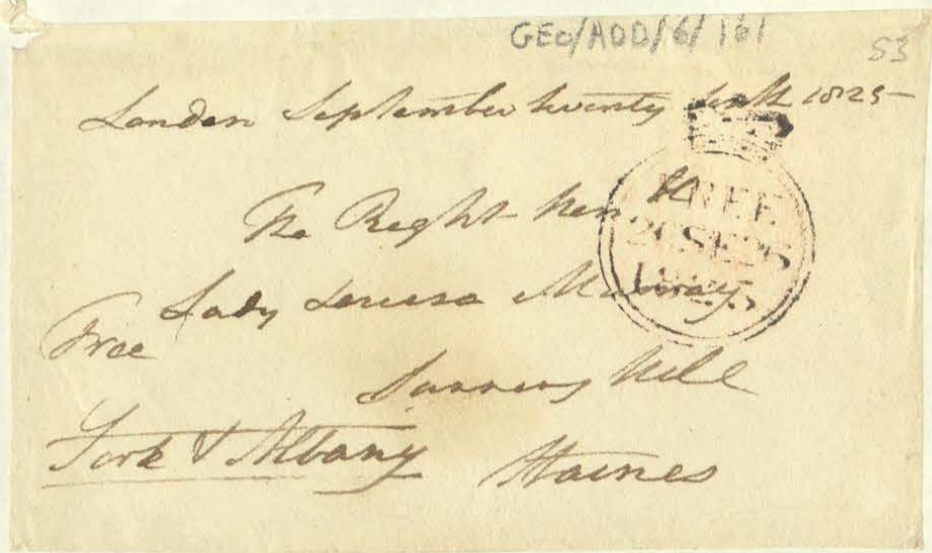 GEO/ADD/6/161
53
London September twenty sixth 1825
The Right Hon
FREE
26SE26
1825
Lady Louisa Murray
Free
Sunning Hill
York & Albany
Staines